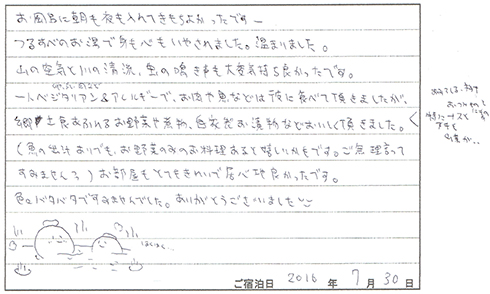 お風呂に朝も夜も入れてきもちよかったですー
つるすべのお湯で身も心もいやされました。温まりました。
山の空気と川の清流、虫の鳴き声も大変気持ち良かったです。
ベジタリアン&アレルギーで、お肉や魚などは彼に食べて頂きましたが、
郷土食あふれるお野菜や煮物、自家製お漬物などおいしく頂きました。
(魚の出汁ありでも、お野菜のみのお料理あると嬉しいかもです。ご無理言って
すみません。) お部屋もとてもきれいで居心地良かったです。
色々バタバタですみませんでした。ありがとうございました
ほくほく…
ご宿泊日 2016 年 7 月 30 日